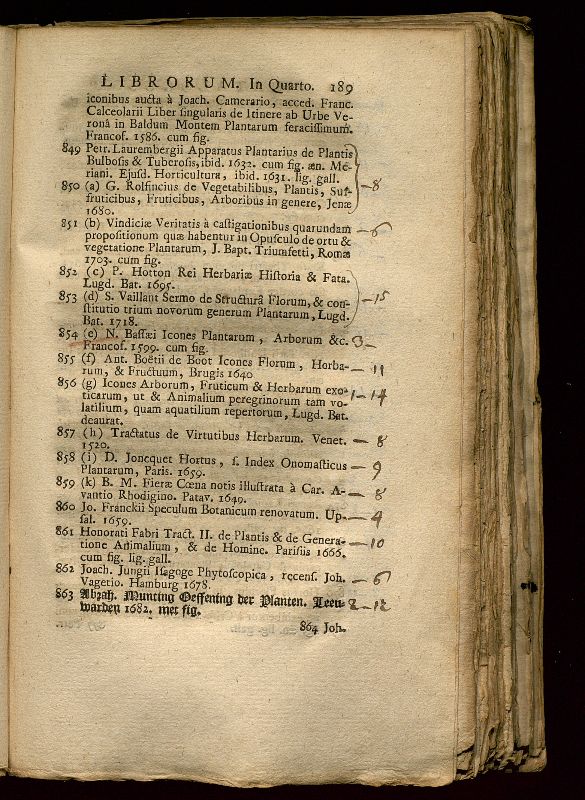 LIBRORUM. In Quarto. 189
iconibus aucta à Joach. Camerario, acced. Franc.
Calceolarii Liber singularis de Itinere ab Urbe Ve-
ronâ in Baldum Montem Plantarum feracissimum.
Francof. 1586. cum fig.
849 Petr. Laurembergii Apparatus Plantarius de Plantis
Bulbosis & Tuberosis, ibid. 1632. cum fig. æn. Me-
riani. Ejusd. Horticultura, ibid. 1631. lig. gall.
850 (a) G. Rolfincius de Vegetabilibus, Plantis, Suf-
fruticibus, Fruticibus, Arboribus in genere, Jenæ
1680.
—8
851 (b) Vindiciæ Veritatis à castigationibus quarundam
propositionum quæ habentur in Opusculo de ortu &
vegetatione Plantarum, J. Bapt. Triumfetti, Romæ
1703. cum fig.
—6
852 (c) P. Hotton Rei Herbariæ Historia & Fata.
Lugd. Bat. 1695.
853 (d) S. Vaillant Sermo de Structurâ Florum, & con-
stitutio trium novorum generum Plantarum, Lugd.
Bat. 1718.
—15
854 (e) N. Bassæi Icones Plantarum, Arborum &c. 3—
Francof. 1599. cum fig.
855 (f) Ant. Boëtii de Boot Icones Florum, Herba-
rum, & Fructuum, Brugis 1640 — 11
856 (g) Icones Arborum, Fruticum & Herbarum exo-
ticarum, ut & Animalium peregrinorum tam vo- 1—14
latilium, quam aquatilium repertorum, Lugd. Bat.
deaurat.
857 (h) Tractatus de Virtutibus Herbarum. Venet. — 8
1520.
858 (i) D. Joncquet Hortus, s. Index Onomasticus — 9
Plantarum, Paris. 1659.
859 (k) B. M. Fieræ Cœna notis illustrata à Car. A- — 8
vantio Rhodigino. Patav. 1649.
860 Jo. Franckii Speculum Botanicum renovatum. Up- — 4
sal. 1659.
861 Honorati Fabri Tract. II. de Plantis & de Genera- — 10
tione Animalium, & de Homine. Parisiis 1666.
cum fig. lig. gall.
862 Joach. Jungii Isagoge Phytoscopica, recens. Joh. — 6
Vagetio. Hamburg 1678.
863 Abrah. Munting Oeffening der Planten. Leeu- 2—12
warden 1682. met fig.
864 Joh.